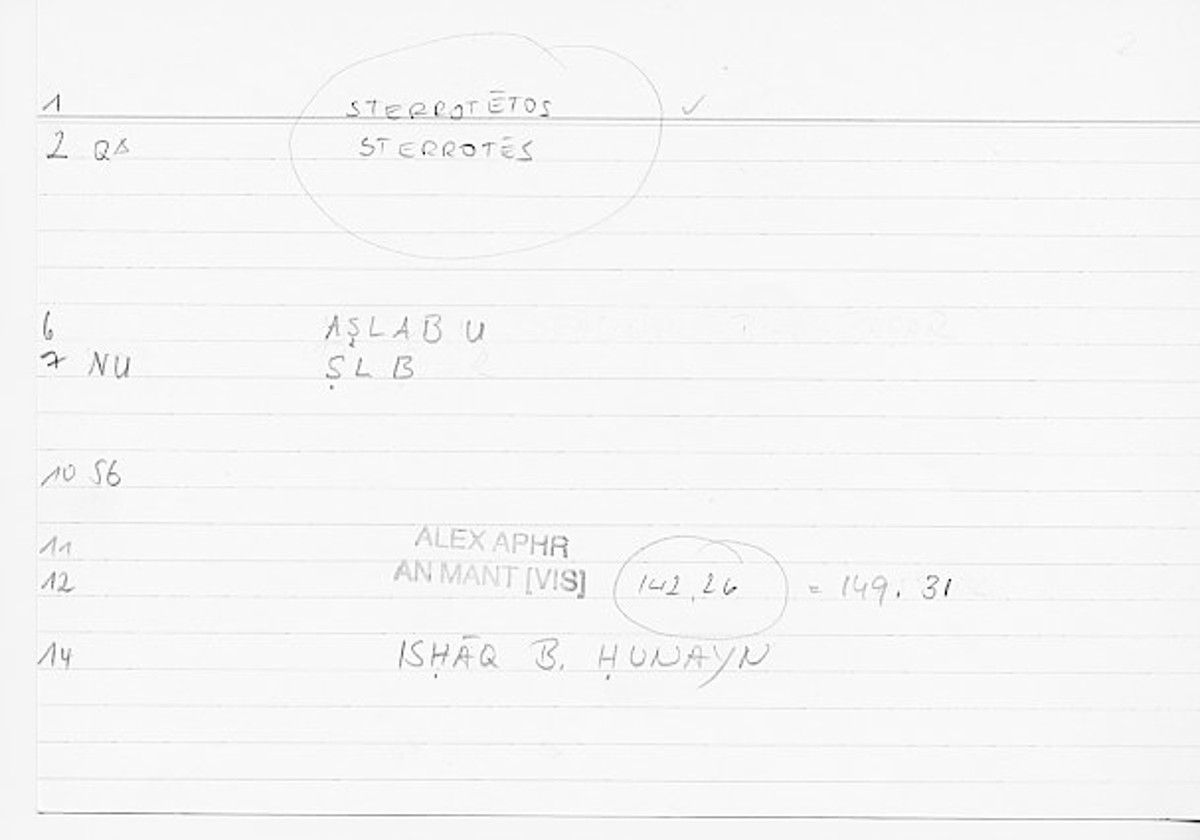 1 STERROTĒTOS ✓
2 QΔ STERROTĒS
6 AṢLAB U
7 NU ṢLB
10 56
11 ALEX APHR
12 AN MANT [VIS] 142,26 = 149.31
14 ISḤĀQ B. ḤUNAYN